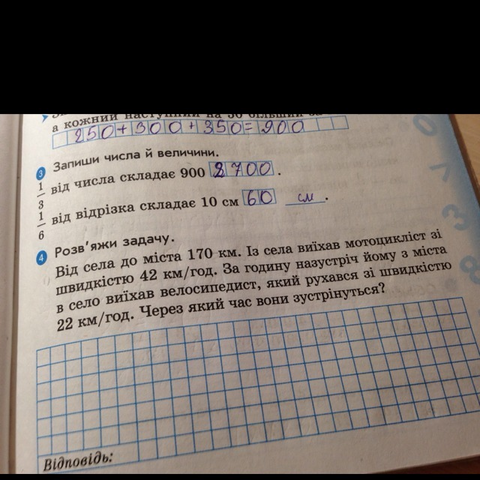 а кожний наступний на 50 більший за
250+300+350=900
3 Запиши числа й величини.
1/3 від числа складає 900 2700.
1/6 від відрізка складає 10 см 60 см.
4 Розв'яжи задачу.
Від села до міста 170 км. Із села виїхав мотоцикліст зі
швидкістю 42 км/год. За годину назустріч йому з міста
в село виїхав велосипедист, який рухався зі швидкістю
22 км/год. Через який час вони зустрінуться?
Відповідь: